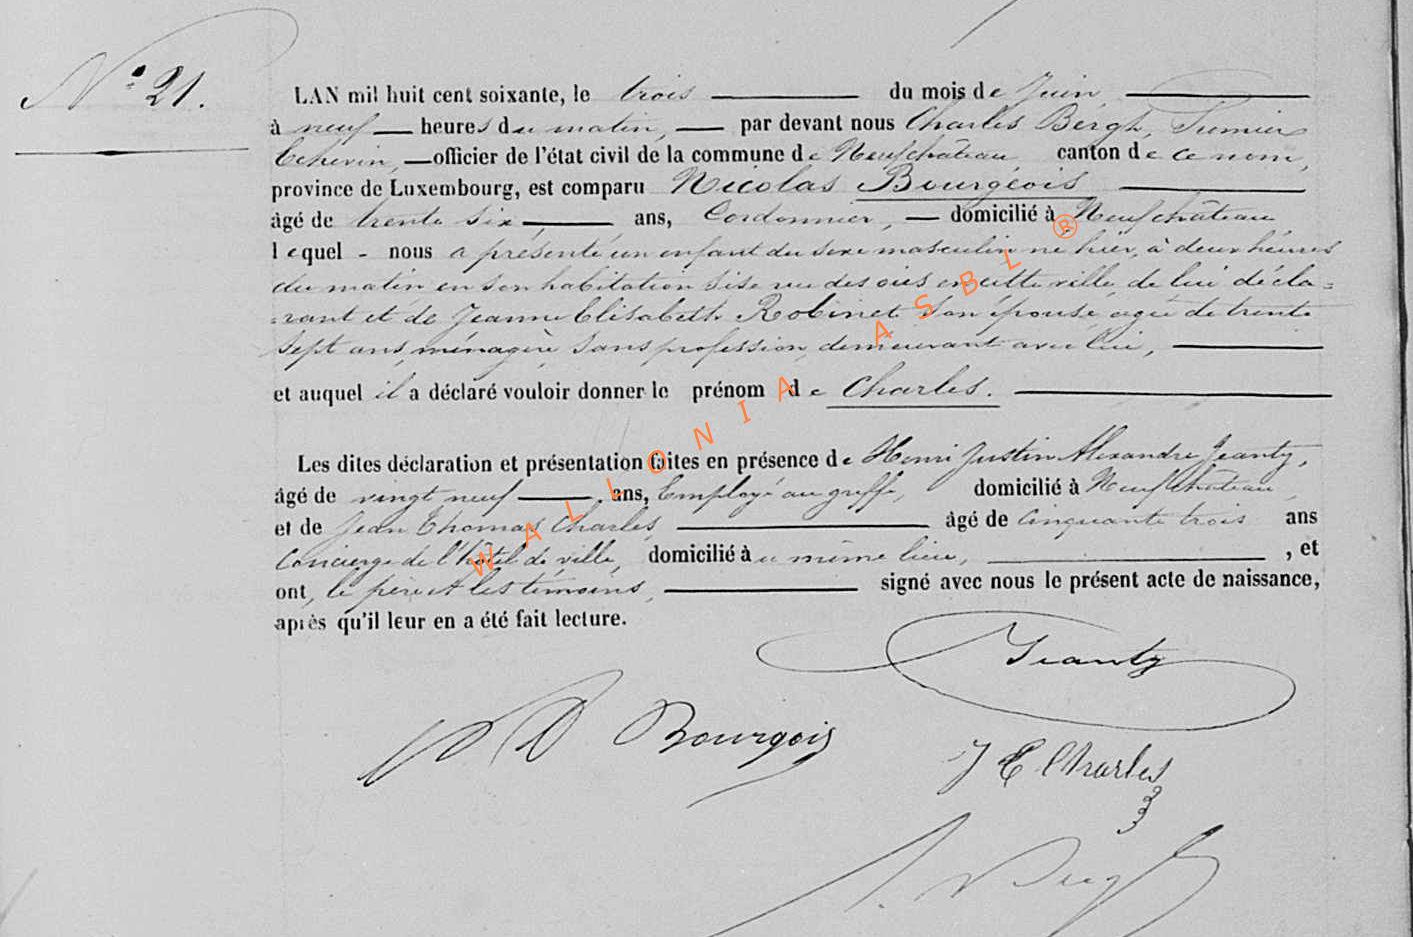 N° 21.
L'AN mil huit cent soixante, le trois du mois de Juin
à neuf heures du matin, par devant nous Charles Bergh, Premier
Echevin, officier de l'état civil de la commune de Neufchâteau canton de ce nom,
province de Luxembourg, est comparu Nicolas Bourgeois
âgé de trente six ans, Cordonnier, domicilié à Neufchâteau
lequel - nous a présenté un enfant du sexe masculin né hier, à deux heures
du matin en son habitation sise rue des oies en cette ville, de lui décla=
=rant et de Jeanne Elisabeth Robinet son épouse, agée de trente
sept ans, ménagère sans profession, demeurant avec lui,
et auquel il a déclaré vouloir donner le prénom de Charles.
Les dites déclaration et présentation faites en présence de Henri Justin Alexandre Jeanty,
âgé de vingt neuf ans, Employé au greffe, domicilié à Neufchâteau
et de Jean Thomas Charles, âgé de cinquante trois ans
Concierge de l'hôtel de ville, domicilié au même lieu, , et
ont, le père et les témoins, signé avec nous le présent acte de naissance,
après qu'il leur en a été fait lecture.
Jeanty
Bourgois
J T Charles
WALLONIA ASBL ®